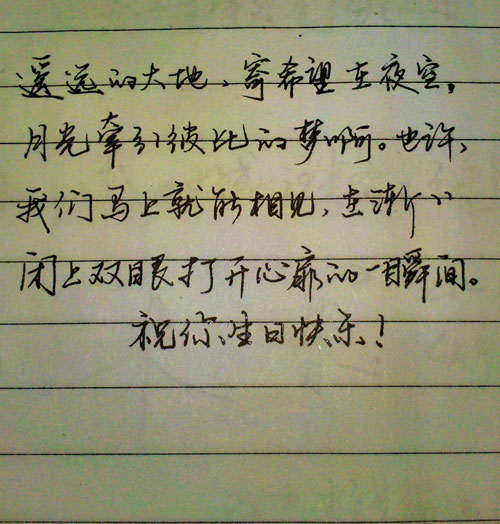 遥远的大地、寄希望在夜空,
月光牵引彼此的梦啊。也许、
我们马上就能相见、在渐〃
闭上双眼打开心扉的一瞬间。
祝你、生日快乐!